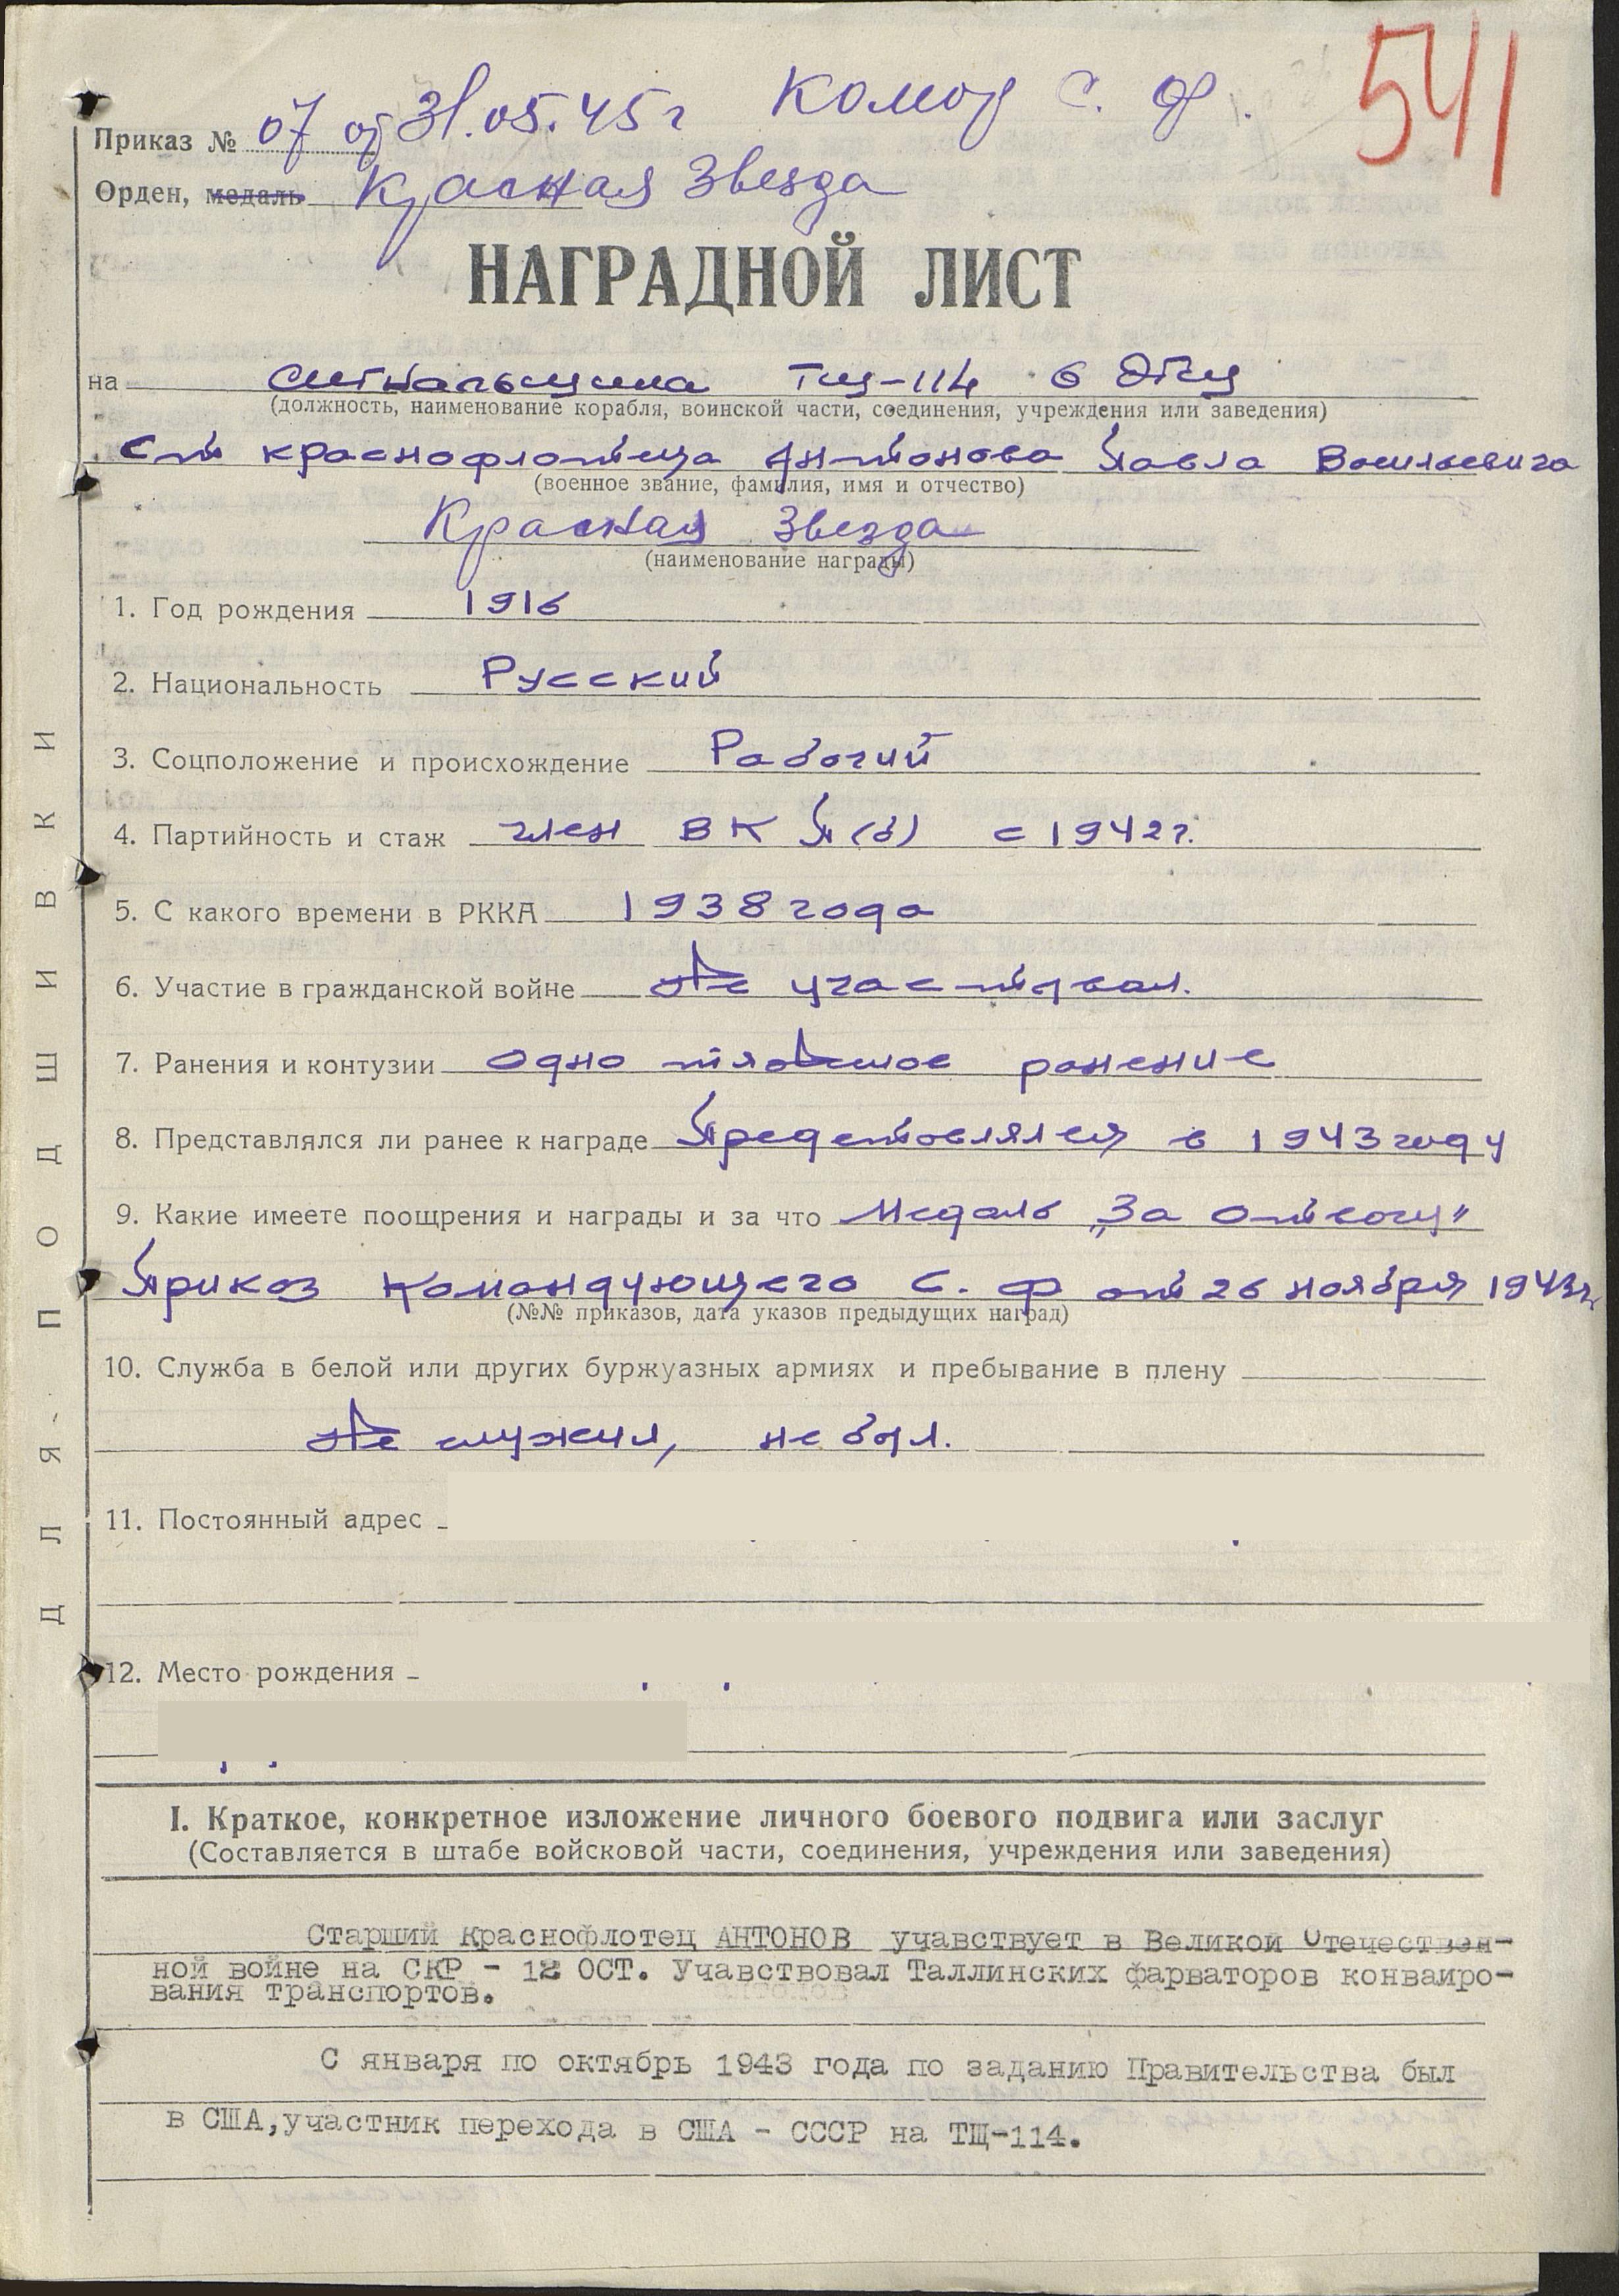 541
Приказ № 07 от 31.05.45 г Комор С. Ф.
Орден, медаль Красная Звезда
НАГРАДНОЙ ЛИСТ
на сигнальщика ТЩ-114 6 ДТЩ
(должность, наименование корабля, воинской части, соединения, учреждения или заведения)
Ст краснофлотца Антонова Павла Васильевича
(военное звание, фамилия, имя и отчество)
Красная Звезда
(наименование награды)
1. Год рождения 1916
2. Национальность Русский
3. Соцположение и происхождение Рабочий
4. Партийность и стаж член ВКП(б) с 1942 г.
5. С какого времени в РККА 1938 года
6. Участие в гражданской войне Не участвовал.
7. Ранения и контузии Одно тяжелое ранение
8. Представлялся ли ранее к награде Представлялся в 1943 году
9. Какие имеете поощрения и награды и за что Медаль „За Отвагу"
Приказ Командующего С. Ф от 26 ноября 1943 г.
(№№ приказов, дата указов предыдущих наград)
10. Служба в белой или других буржуазных армиях и пребывание в плену
Не служил, не был.
11. Постоянный адрес
12. Место рождения
I. Краткое, конкретное изложение личного боевого подвига или заслуг
(Составляется в штабе войсковой части, соединения, учреждения или заведения)
Старший Краснофлотец АНТОНОВ учавствует в Великой Отечествен-
ной войне на СКР - 12 ОСТ. Учавствовал Таллинских фарваторов конваиро-
вания транспортов.
С января по октябрь 1943 года по заданию Правительства был
в США,участник перехода в США - СССР на ТЩ-114.
ДЛЯ ПОДШИВКИ